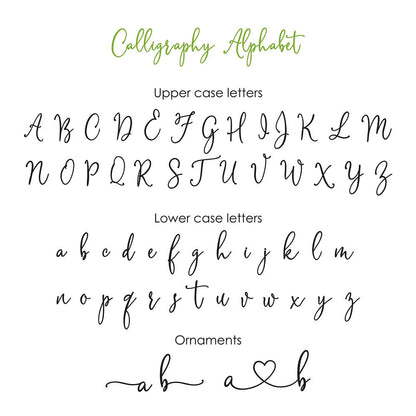 Calligraphy Alphabet
Upper case letters
A B C D E F G H I J K L M
N O P Q R S T U V W X Y Z
Lower case letters
a b c d e f g h i j k l m
n o p q r s t u v w x y z
Ornaments
a b a b